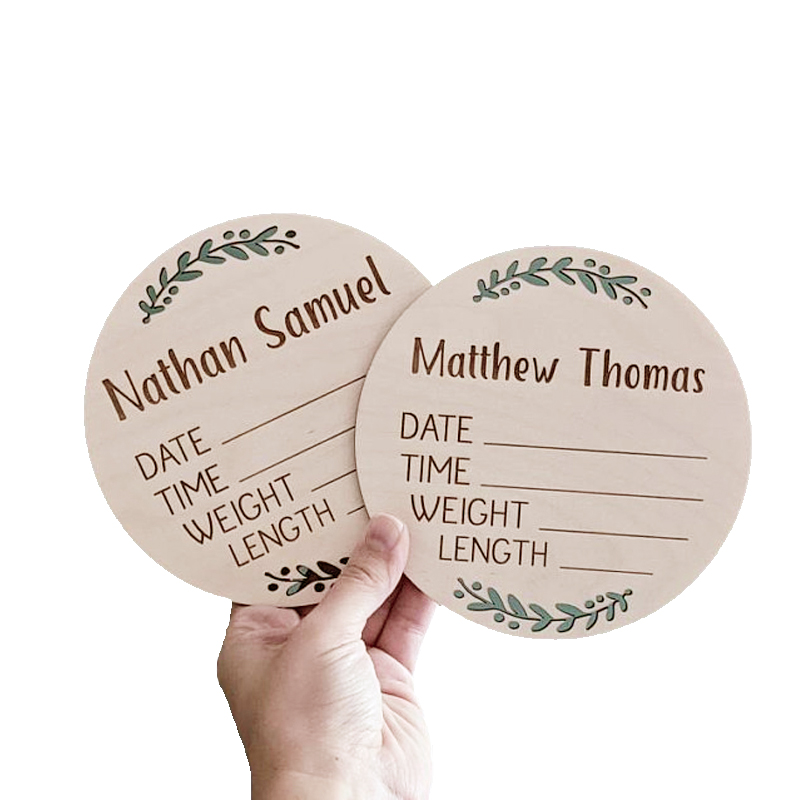 Nathan Samuel
DATE
TIME
WEIGHT
LENGTH
Matthew Thomas
DATE
TIME
WEIGHT
LENGTH